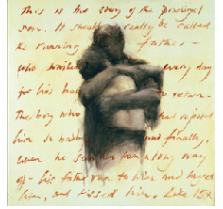 This is the story of the prodigal
son. It should really be called
the running father -
who waited every day
for his to return.
The boy who had rejected
him and finally,
when he saw him a long way
off - his father ran to him and hugged
him, and kissed him. Luke 15